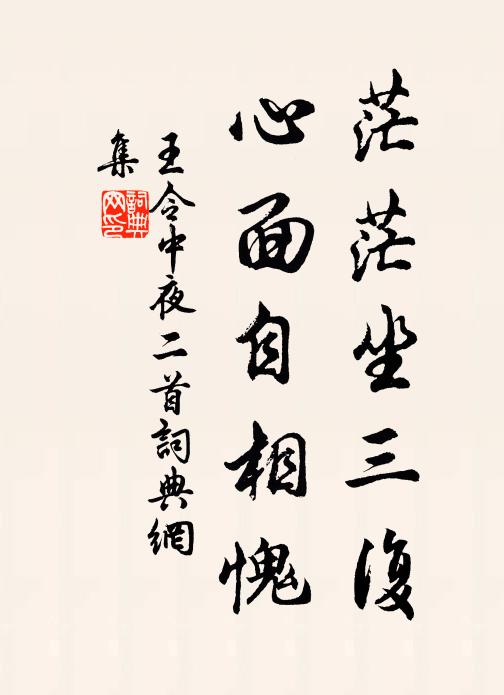 茫茫坐三復
心面自相愧
王令中夜二首詞典網
集
詞典
网印